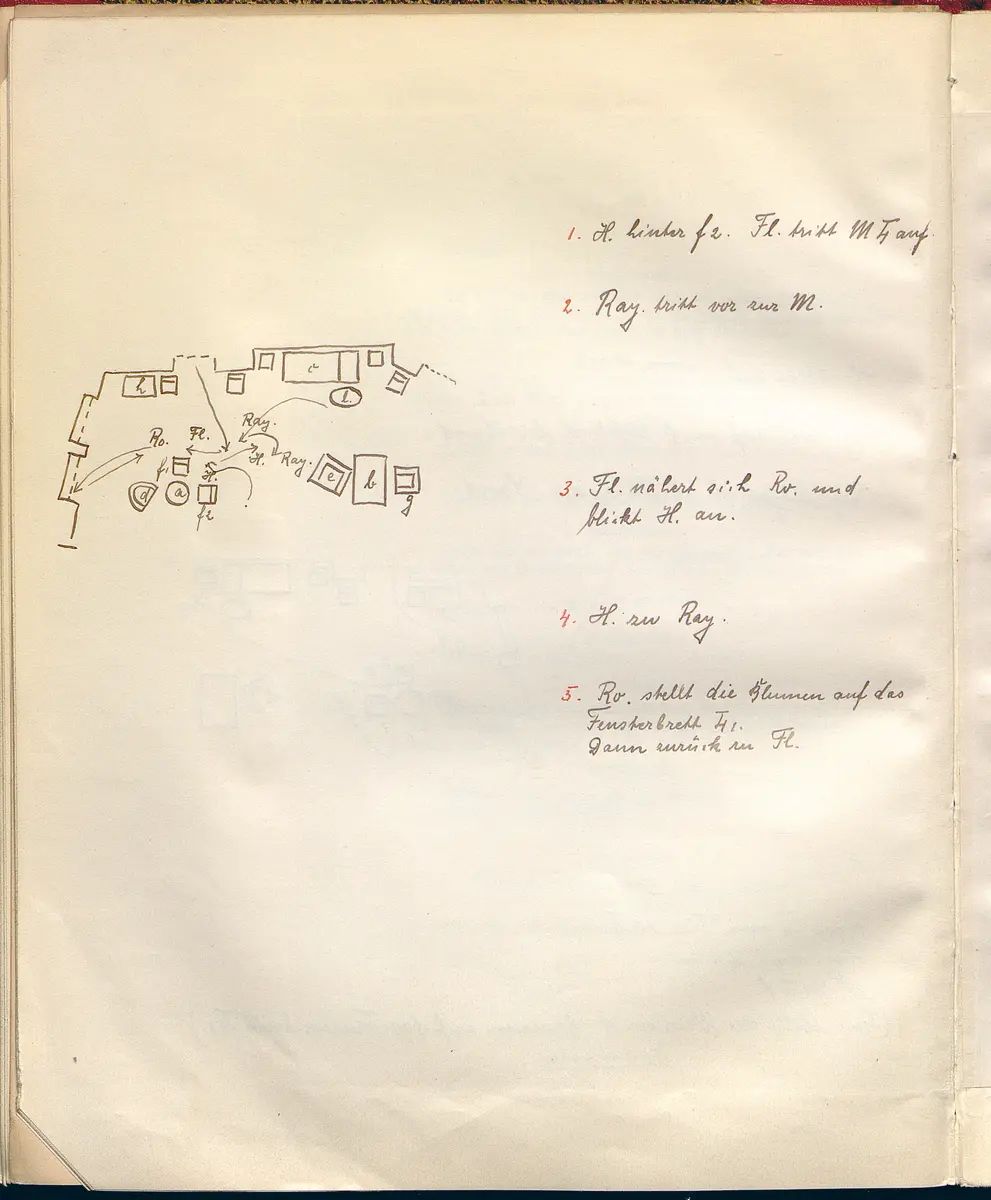 1. H. hinter f2. Fl. tritt M T4 auf.
2. Ray. tritt vor zur M.
h
c
l.
Ray.
Ro.
Fl.
H.
Ray.
f1
H.
e
b
g
d
a
f2
3. Fl. nähert sich Ro. und
blickt H. an.
4. H. zu Ray.
5. Ro. stellt die Blumen auf das
Fensterbrett
Dann zurück zu Fl.